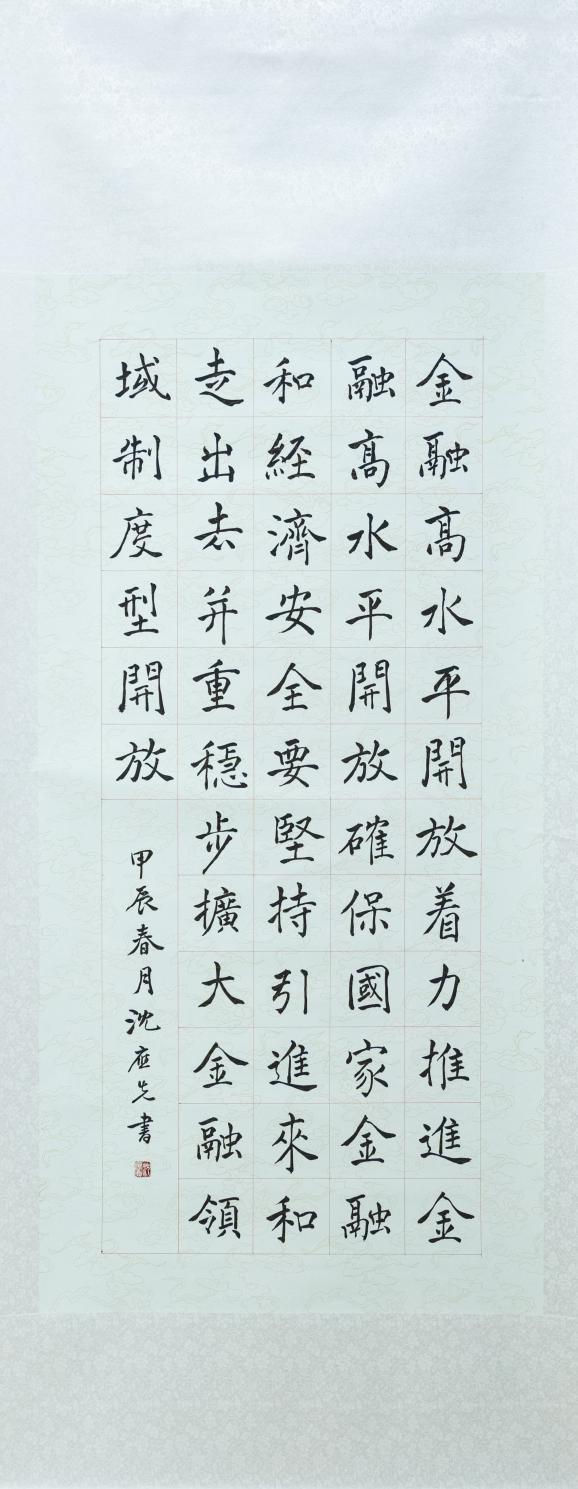 金融高水平開放着力推進金
融高水平開放確保國家金融
和經濟安全要堅持引進來和
走出去并重穩步擴大金融領
域制度型開放
甲辰春月沈应先書